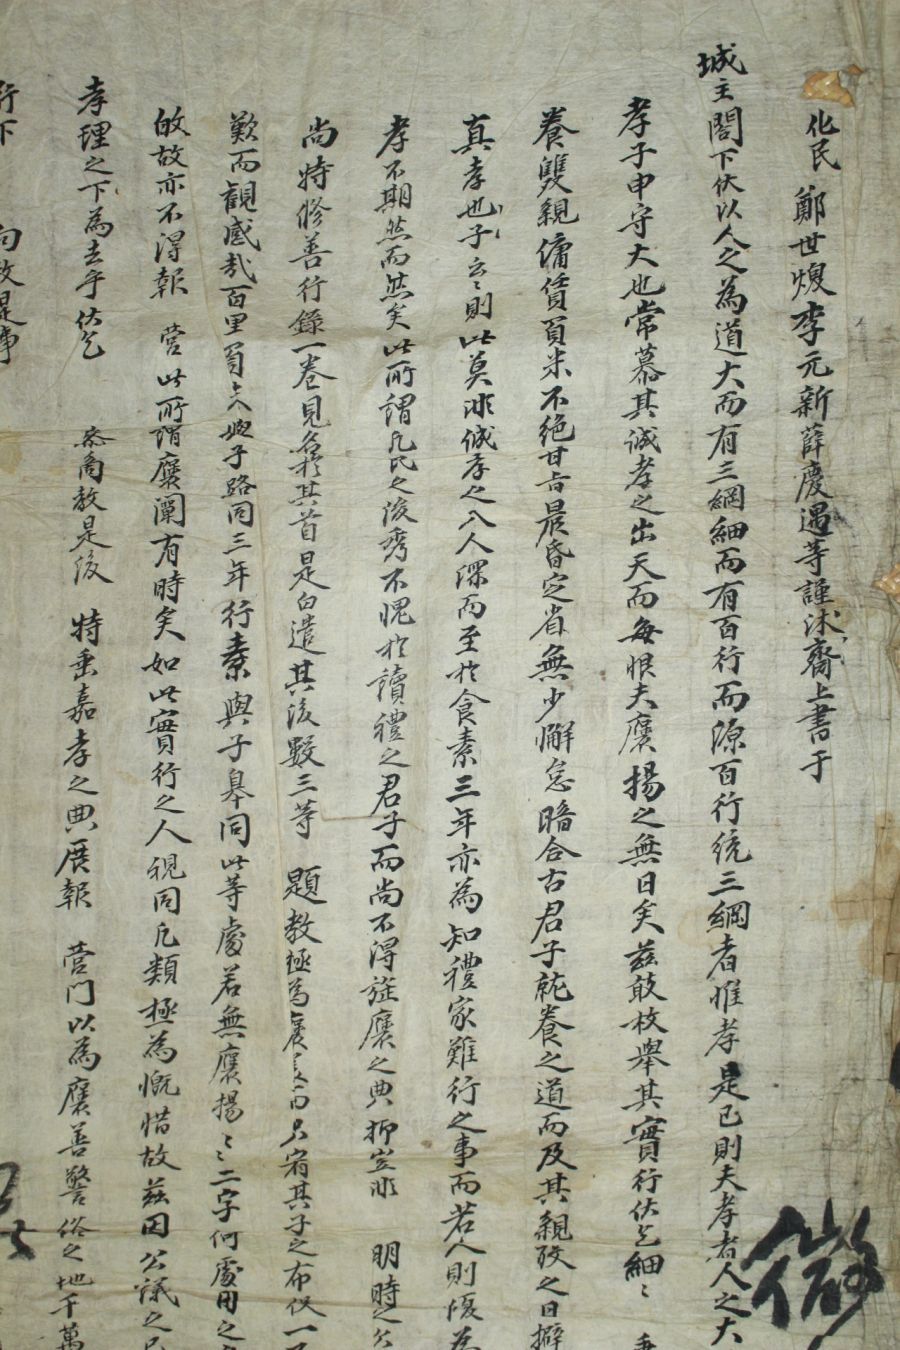 化民 鄭世煥李元新薛慶遇等謹沐齋上書于
城主閤下伏以人之為道大而有三綱細而有百行而源百行統三綱者惟孝是已則夫孝者人之大
孝子申守大也常慕其誠孝之出天而每恨夫襃揚之無日矣玆敢枚擧其實行伏乞細〻
養雙親傭賃負米不絶甘旨晨昏定省無少懈怠暗合古君子就養之道而及其親歿之日擗
真孝也子云〻則此莫非誠孝之入人深而至於食素三年亦為知禮家難行之事而若人則復為
孝不期然而然矣此所謂凡民之浚秀不愧於讀禮之君子而尚不得旌襃之典抑豈非 明時之欠
尚特修善行錄一卷見名於其首是白遣其後數三等 題教極為襃 其子之布伏一
歎而觀感哉百里 與子路同三年行素與子皐同此等處若無襃揚〻〻二字何處用之
故亦不得報 營此所謂襃闡有時矣如此實行之人視同凡類極為慨惜故玆因公議之
孝理之下為去乎伏乞 參商教是後 特垂嘉孝之典展報 營門以為襃善警俗之地千萬
行下 向教是事